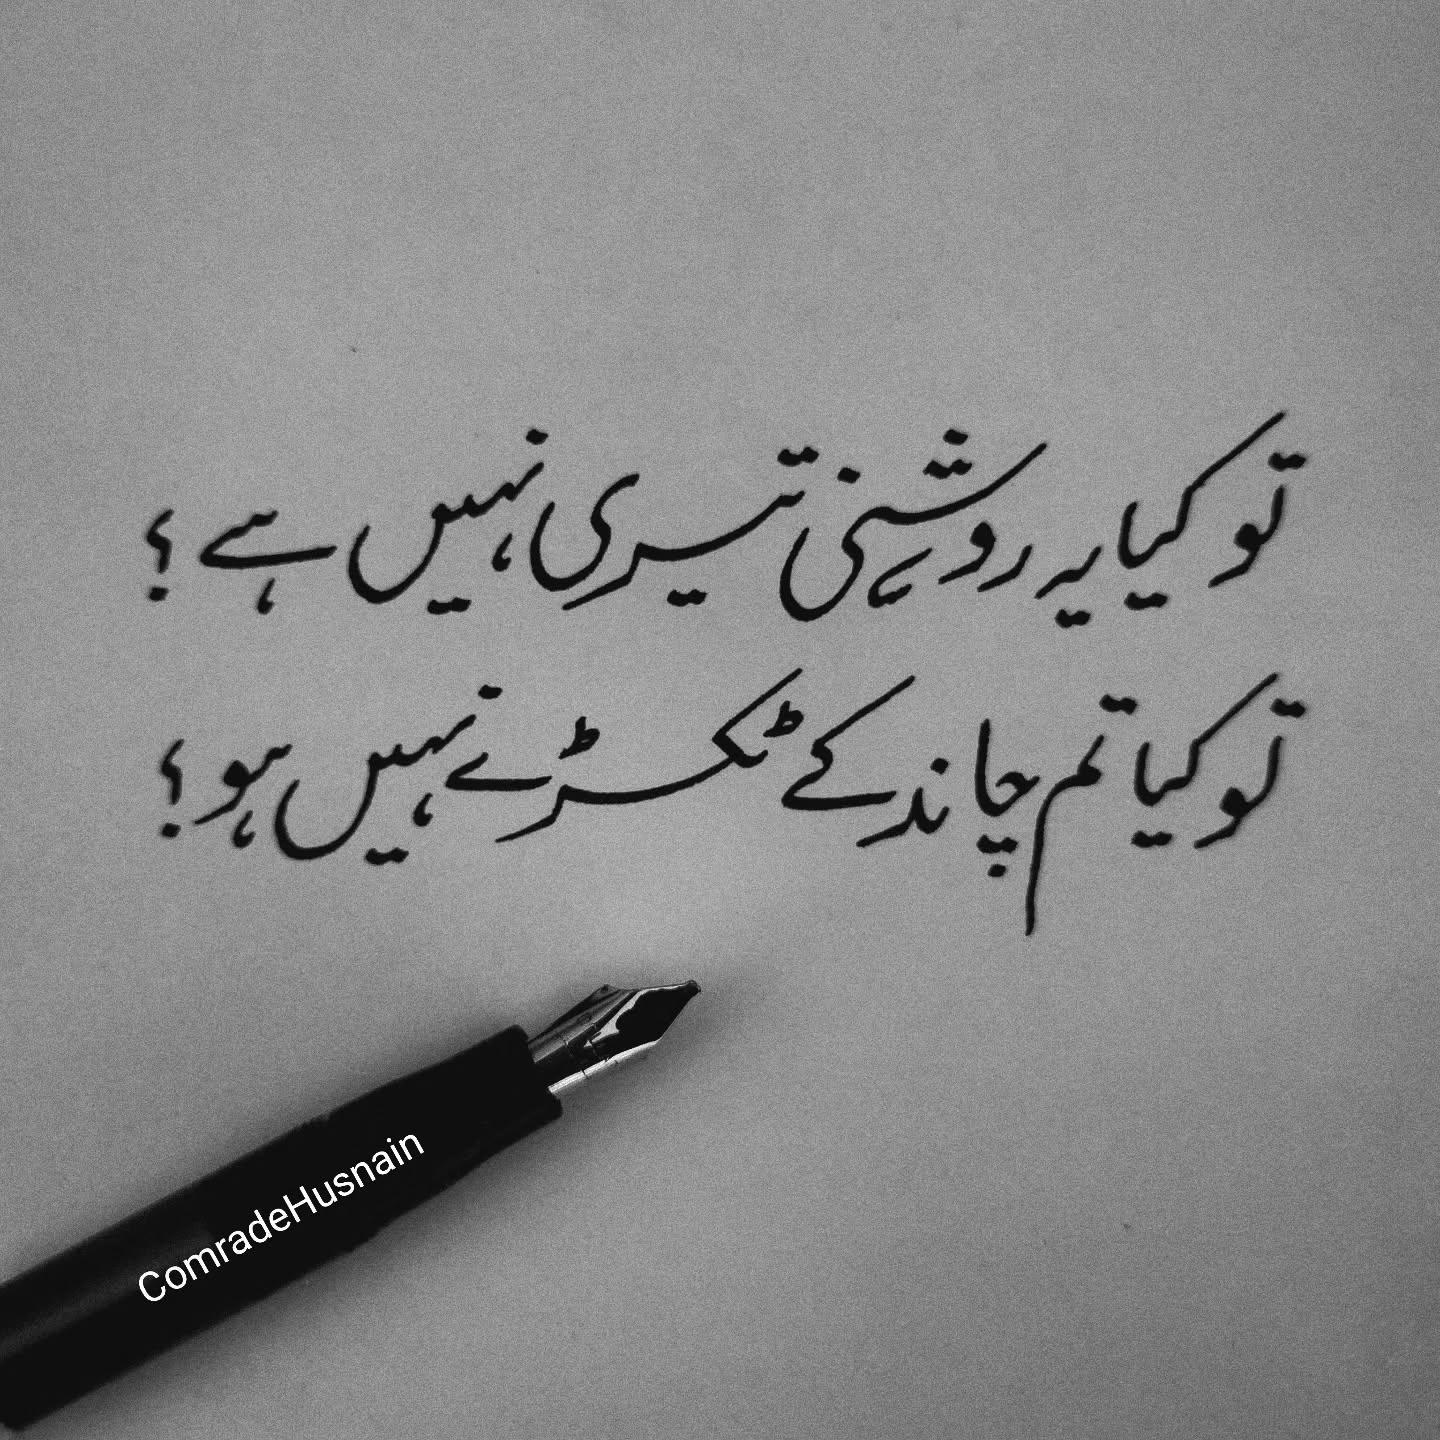 تو کیا یہ روشنی تیری نہیں ہے ؟
تو کیا تم چاند کے ٹکڑے نہیں ہو ؟
ComradeHusnain